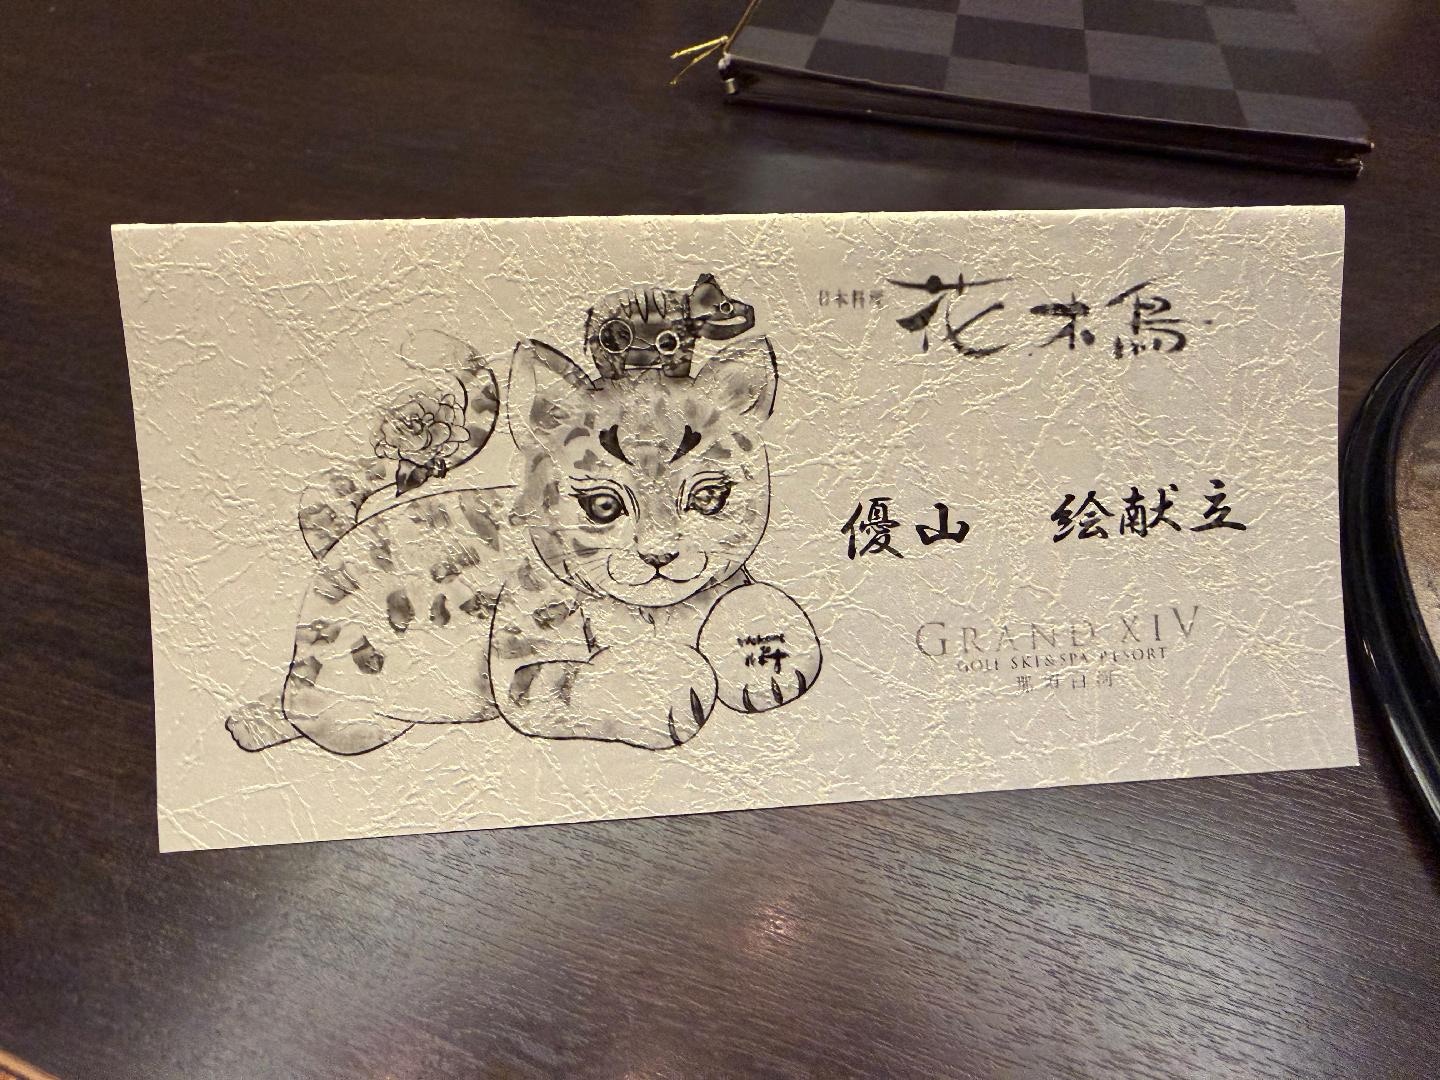 日本料理 花木鳥
優山 絵献立
GRAND XIV
GOLF SKI&SPA RESORT
那須白河